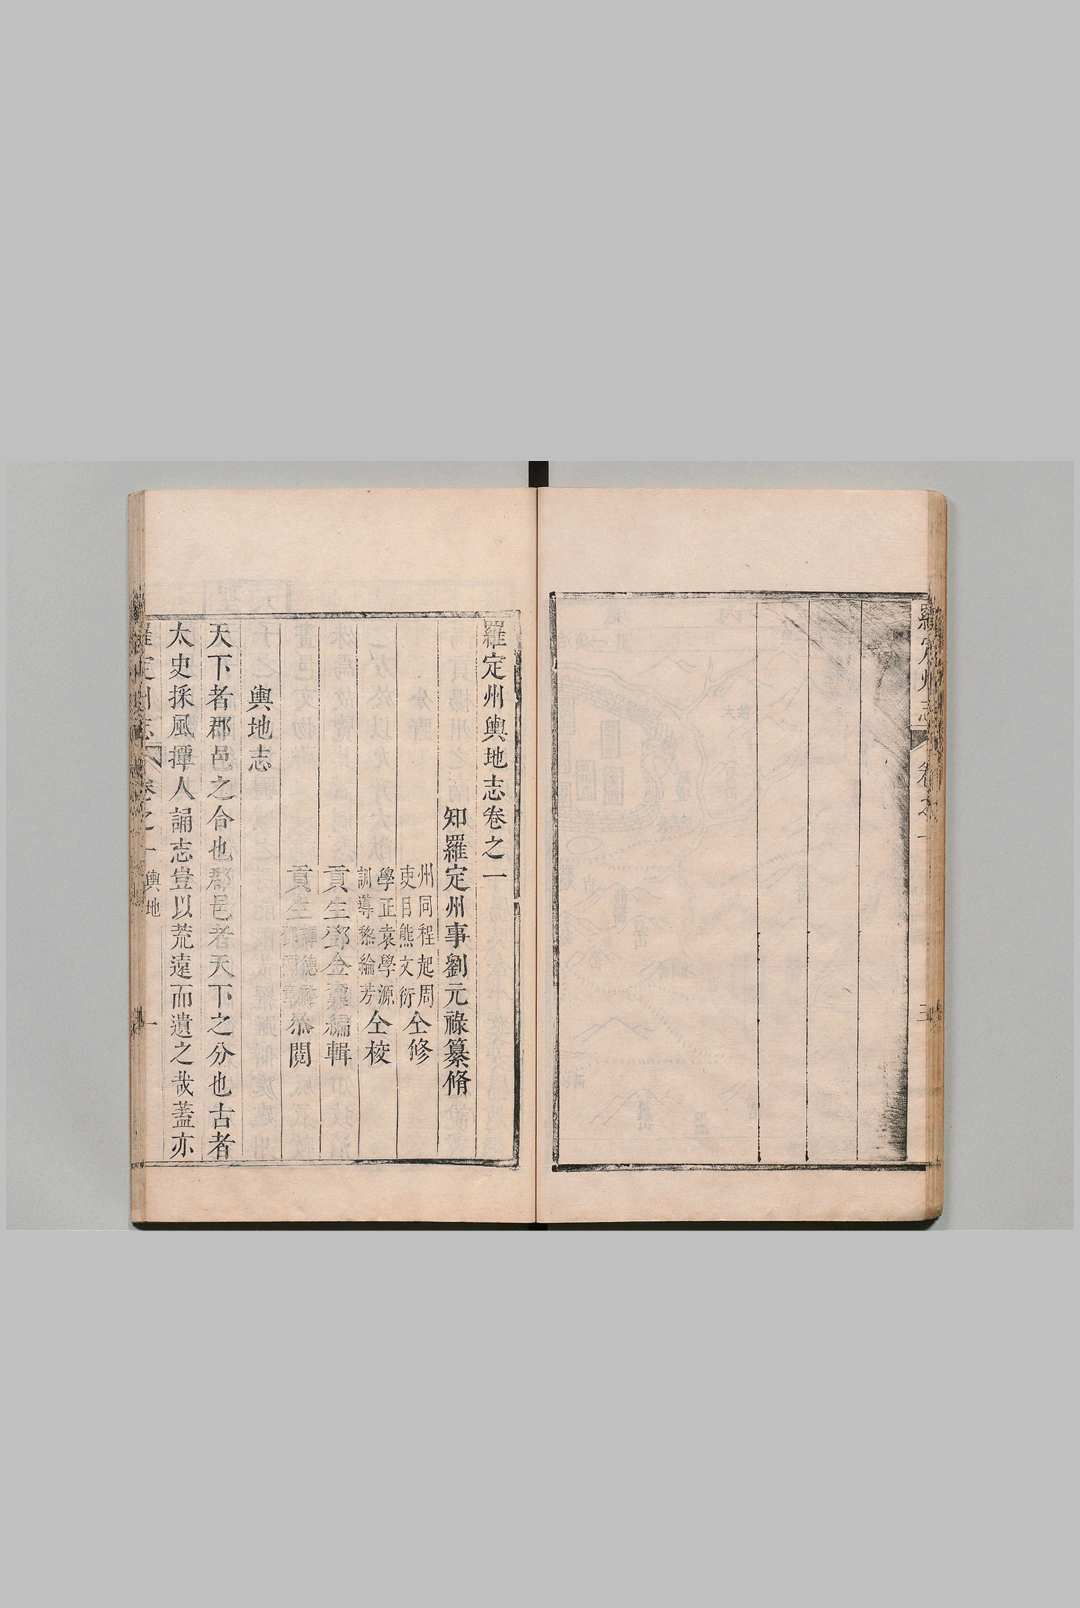 羅定州志
卷之一
三
羅定州輿地志卷之一
知羅定州事劉元祿纂脩
州同程起周
吏目熊文衍
仝修
學正袁學源
訓導黎綸芳
仝校
貢生鄧金編輯
貢生
德
閱
輿地志
天下者郡邑之合也郡邑者天下之分也古者
太史採風撢人誦志豈以荒遠而遺之哉蓋亦
羅定州志
卷之一
輿地
一